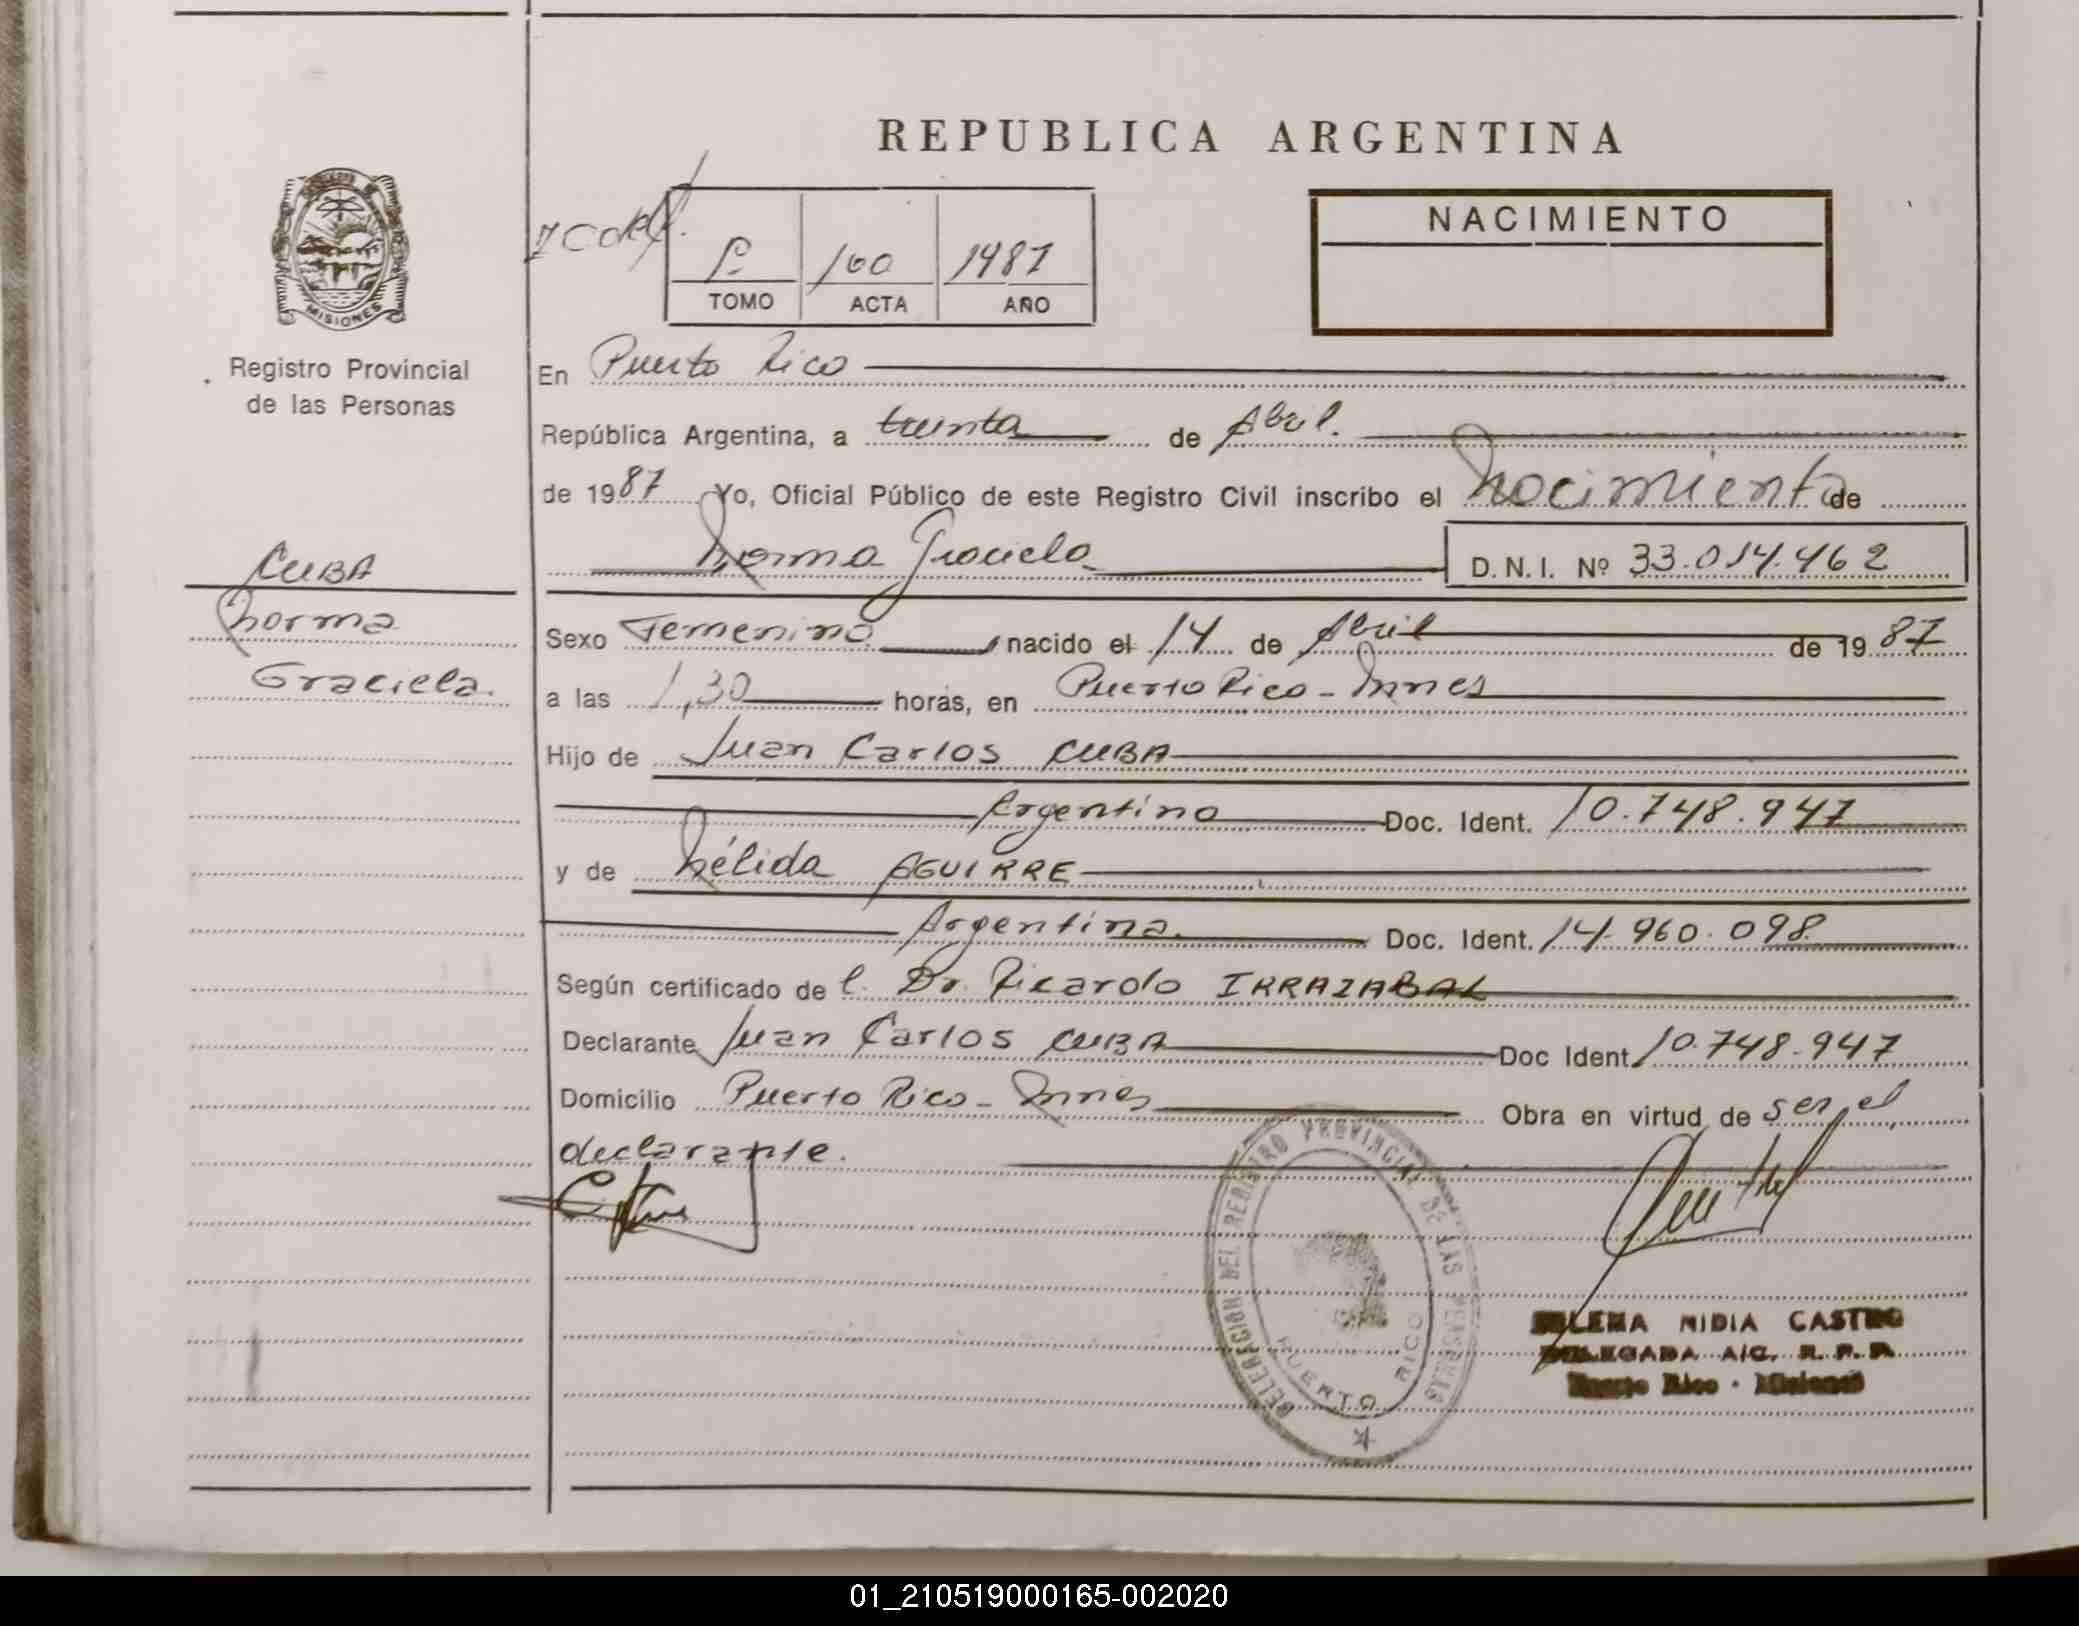 REPUBLICA ARGENTINA
MISIONES
Registro Provincial
de las Personas
1º 100 1987
TOMO ACTA AÑO
NACIMIENTO
En Puerto Rico
República Argentina, a treinta de Abril.
de 1987 Yo, Oficial Público de este Registro Civil inscribo el Nacimiento de
Norma Graciela D.N.I. Nº 33.014.462
CUBA
Norma
Graciela.
Sexo Femenino nacido el 14 de Abril de 1987
a las 1,30 horas, en Puerto Rico - Mnes
Hijo de Juan Carlos CUBA
Argentino Doc. Ident. 10.748.947
y de Nélida AGUIRRE
Argentina. Doc. Ident. 14.960.098
Según certificado de l. Dr. Ricardo IRRAZABAL
Declarante Juan Carlos CUBA Doc Ident. 10.748.947
Domicilio Puerto Rico - Mnes Obra en virtud de ser el
declarante.
DELEGACION DEL REGISTRO PROVINCIAL DE LAS PERSONAS
PUERTO RICO
NIDIA CASTRO
DELEGADA A/C. R. P. P.
Puerto Rico - Misiones
01_210519000165-002020